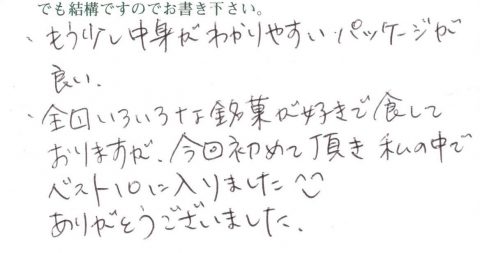 でも結構ですのでお書き下さい。
、もう少し中身がわかりやすいパッケージが
良い.
・全国いろいろな銘菓が好きで食して
おりますが、今回初めて頂き私の中で
ベスト10に入りました^^
ありがとうございました.